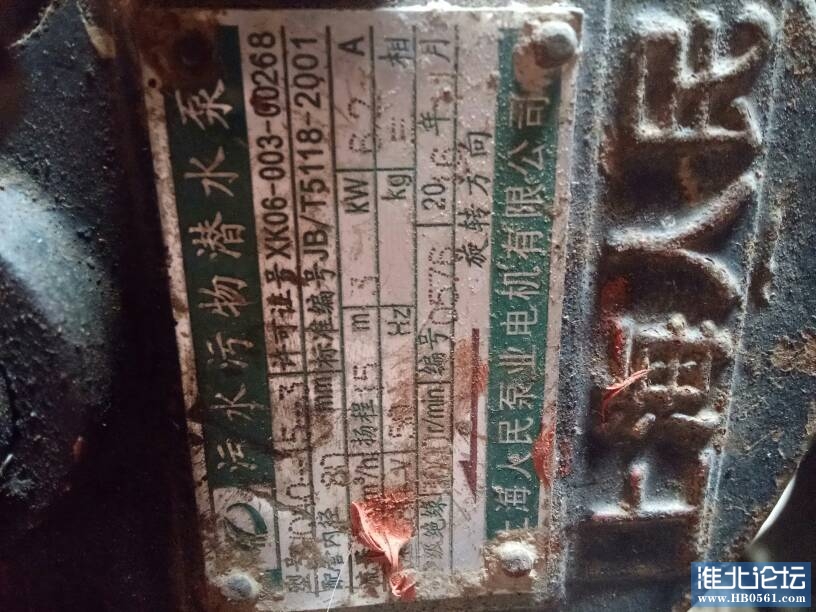 污水污物潜水泵
型号 许可证号XK06-003-00268
配管内径 80 mm 标准编号JB/T5118-2001
m³/h 扬程 15 m 3 KW A
V Hz kg 相
级绝缘 r/min 编号 20 年 月
旋转方向
上海人民泵业电机有限公司
上海人民
淮北论坛
WWW.HB0561.COM